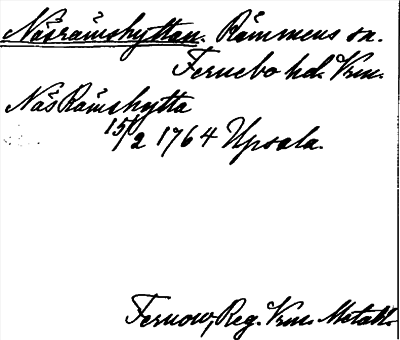 Näsrämshyttan. Rämmens sn.
Fernebo hd. Vrm.
Näs Rämshytta
15/2 1764 Upsala.
Fernow, Reg. Vrm. Metallh.